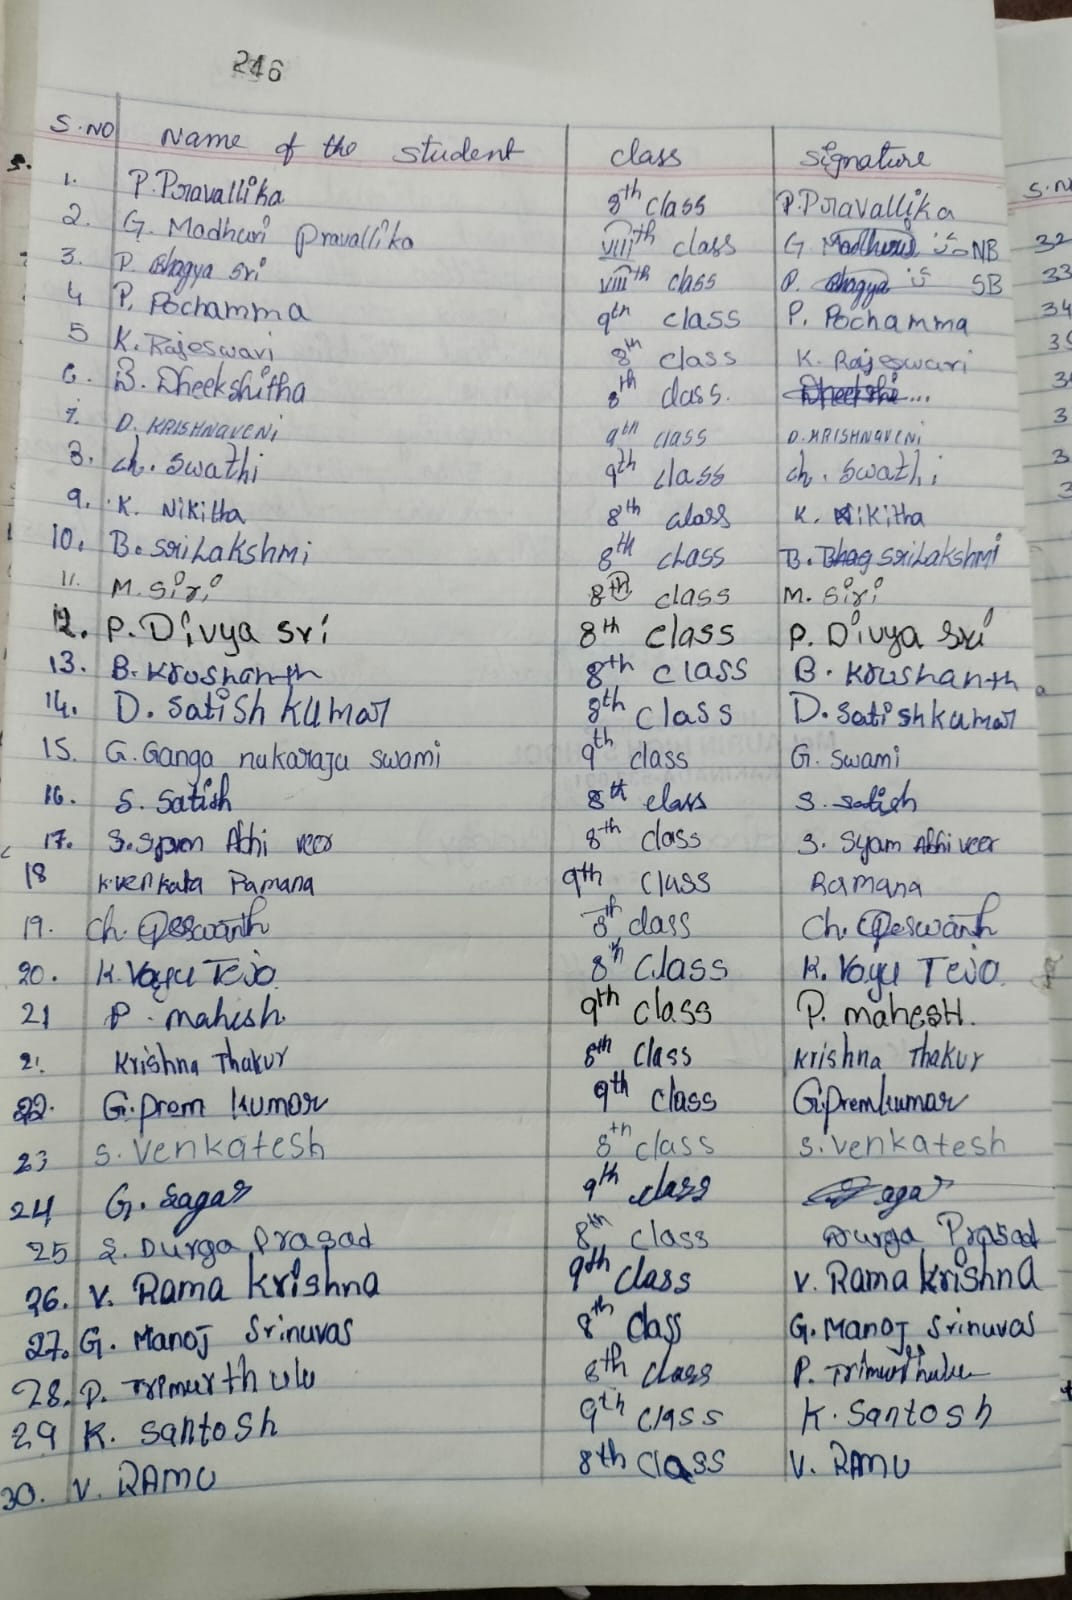 246
S.NO Name of the student class signature
1. P.Pravallika 8th class P.Pravallika
2. G. Madhuri pravallika viiith class G Madhuri NB
3. P. Bhagya sri viiith class P. Bhagya SB
4 P. Pochamma 9th class P. Pochamma
5 K. Rajeswari 8th class K. Rajeswari
6. B. Dheekshitha 8th class.
7. D. KRISHNAVENI 9th class D.KRISHNAVENI
8. ch. Swathi 9th class ch. Swathi
9. K. Nikitha 8th class K. Nikitha
10. B. sriLakshmi 8th class B. sriLakshmi
11. M. Siri 8th class M. Siri
12. P. Divya sri 8th class P. Divya Sri
13. B. Krushanth 8th class B. Krushanth
14. D. Satish kumar 8th class D. Satish kumar
15. G. Ganga nukaraju swami 9th class G. Swami
16. S. Satish 8th class S. Satish
17. S. Syam Abhi veer 8th class S. Syam Abhi veer
18 K.venkata Ramana 9th class Ramana
19. Ch. 8th class Ch.
20. K. Vayu Teja 8th Class K. Vayu Teja
21 P. mahesh. 9th class P. mahesH.
21 Krishna Thakur 8th Class Krishna Thakur
22. G.prem kumar 9th class G.premkumar
23 S. Venkatesh 8th class S. Venkatesh
24 G. Sagar 9th class agar
25 S. Durga Prasad 8th class Durga Prasad
26. V. Rama Krishna 9th class V. Rama Krishna
27. G. Manoj Srinuvas 8th class G. Manoj Srinuvas
28. P. Trimurthulu 8th class P. Trimurthulu
29 K. Santosh 9th class K. Santosh
30. V. RAMU 8th class V. RAMU
S.N
32
33
34